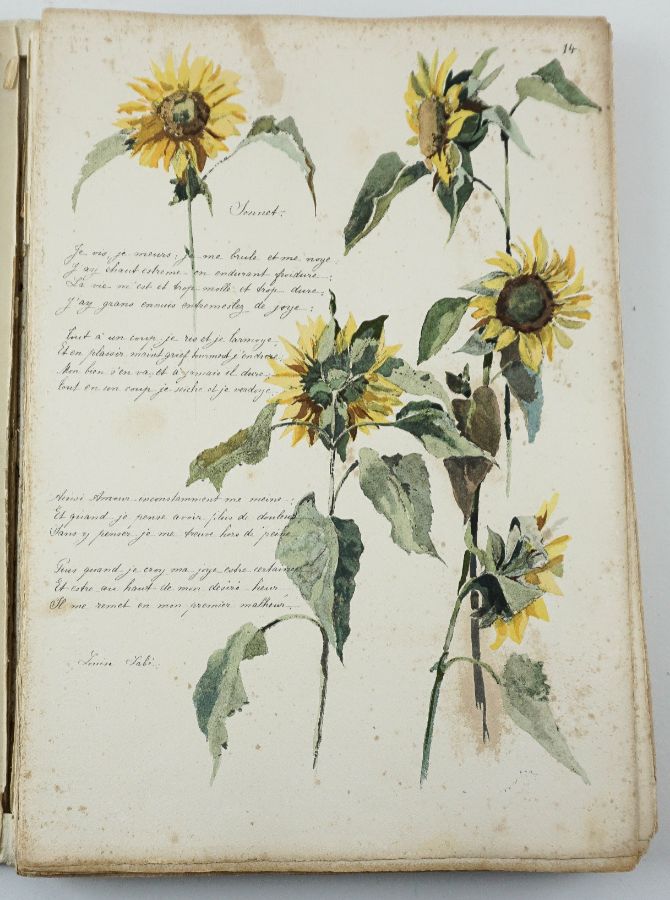 14
Sonnet:
Je vis, je meurs: je me brule et me noye.
J'ay chaut estreme en endurant froidure:
La vie m'est et trop molle et trop dure.
J'ay grans ennuis entremeslez de joye:
Tout à un coup je ris et je larmoye,
Et en plaisir maint grief tourment j'endure:
Mon bien s'en va, et à jamais il dure:
Tout en un coup je seiche et je verdoye.
Ainsi Amour inconstamment me meine:
Et quand je pense avoir plus de douleur
Sans y penser je me treuve hors de peine.
Puis quand je croy ma joye estre certaine
Et estre au haut de mon desiré heur
Il me remet en mon premier malheur.
Louise Labé.